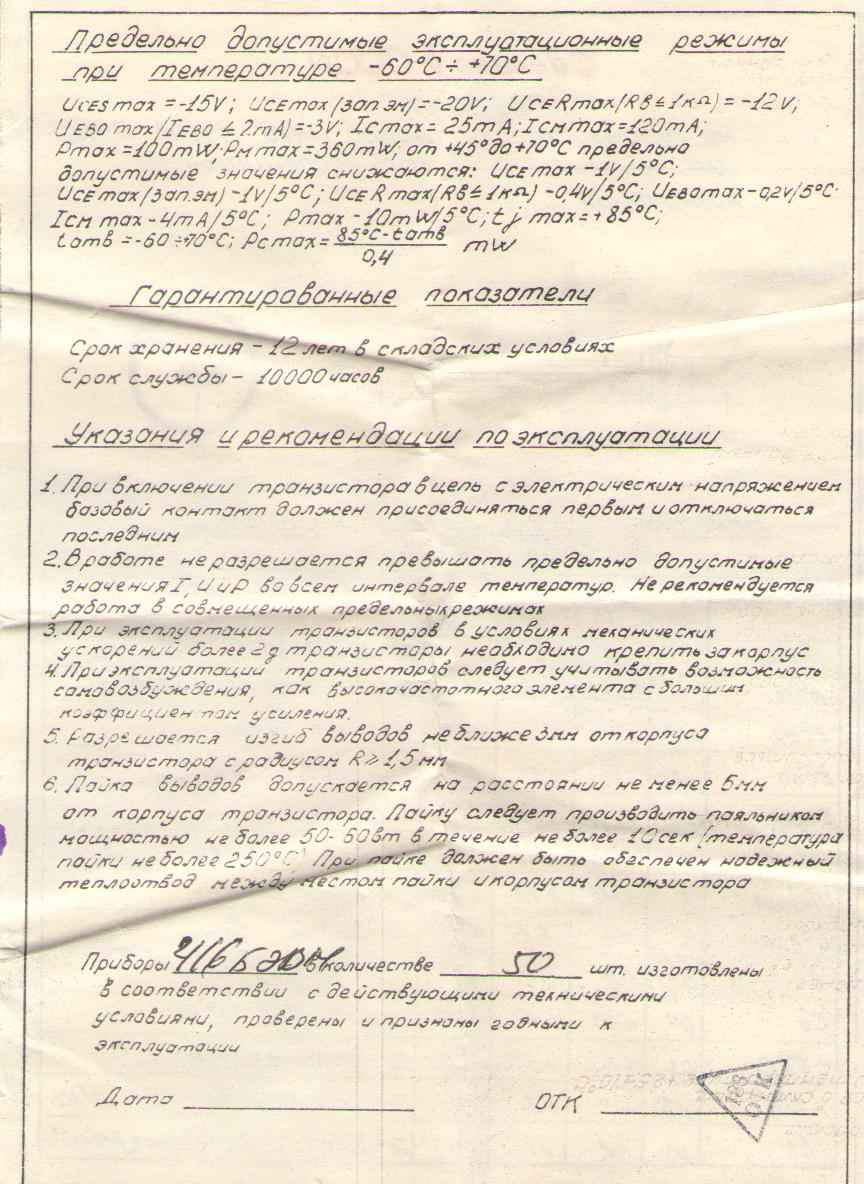 Предельно допустимые эксплуатационные режимы
при температуре -60°C ÷ +70°C
UCES max = -15V; UCE max (зап.эм) = -20V; UCER max (RB ≤ 1кΩ) = -12V;
UEBO max (IEBO ≤ 2mA) = -3V; IC max = 25mA; ICM max = 120mA;
Pmax = 100mW; PM max = 360mW, от +45° до +70°C предельно
допустимые значения снижаются: UCE max -1V/5°C;
UCE max (зап.эм) -1V/5°C; UCER max (RB ≤ 1кΩ) -0,4V/5°C; UEBO max -0,2V/5°C.
ICM max -4mA/5°C; Pmax -10mW/5°C; tj max = +85°C;
tamb = -60 ÷ +70°C; PC max = (85°C - tamb)/0,4 mW
Гарантированные показатели
Срок хранения - 12 лет в складских условиях
Срок службы - 10000 часов
Указания и рекомендации по эксплуатации
1. При включении транзистора в цепь с электрическим напряжением
базовый контакт должен присоединяться первым и отключаться
последним
2. В работе не разрешается превышать предельно допустимые
значения I, U и P во всем интервале температур. Не рекомендуется
работа в совмещенных предельных режимах
3. При эксплуатации транзисторов в условиях механических
ускорений более 2g транзисторы необходимо крепить за корпус
4. При эксплуатации транзисторов следует учитывать возможность
самовозбуждения, как высокочастотного элемента с большим
коэффициентом усиления.
5. Разрешается изгиб выводов не ближе 3мм от корпуса
транзистора с радиусом R ≥ 1,5мм
6. Пайка выводов допускается на расстоянии не менее 5мм
от корпуса транзистора. Пайку следует производить паяльником
мощностью не более 50-60вт в течение не более 10сек (температура
пайки не более 250°C) При пайке должен быть обеспечен надежный
теплоотвод между местом пайки и корпусом транзистора
Приборы 416Б в количестве 50 шт. изготовлены
в соответствии с действующими техническими
условиями, проверены и признаны годными к
эксплуатации
Дата ОТК
ОТК